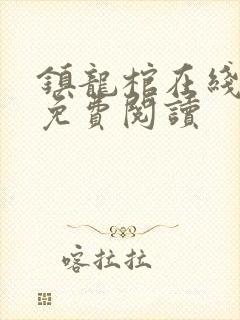 鎮龍棺在綫
免費閱讀
喀拉拉